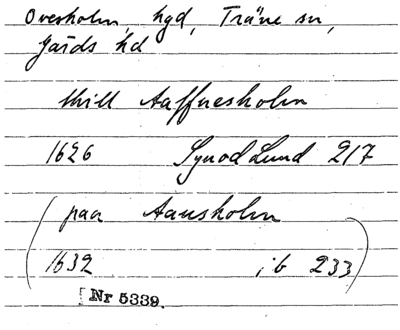 Ovesholm, hgd, Träne sn,
Järds hd
thill Aaffuesholm
1626 Synod Lund 217
(paa Aausholm
1632 ib 233)
[Nr 5339.